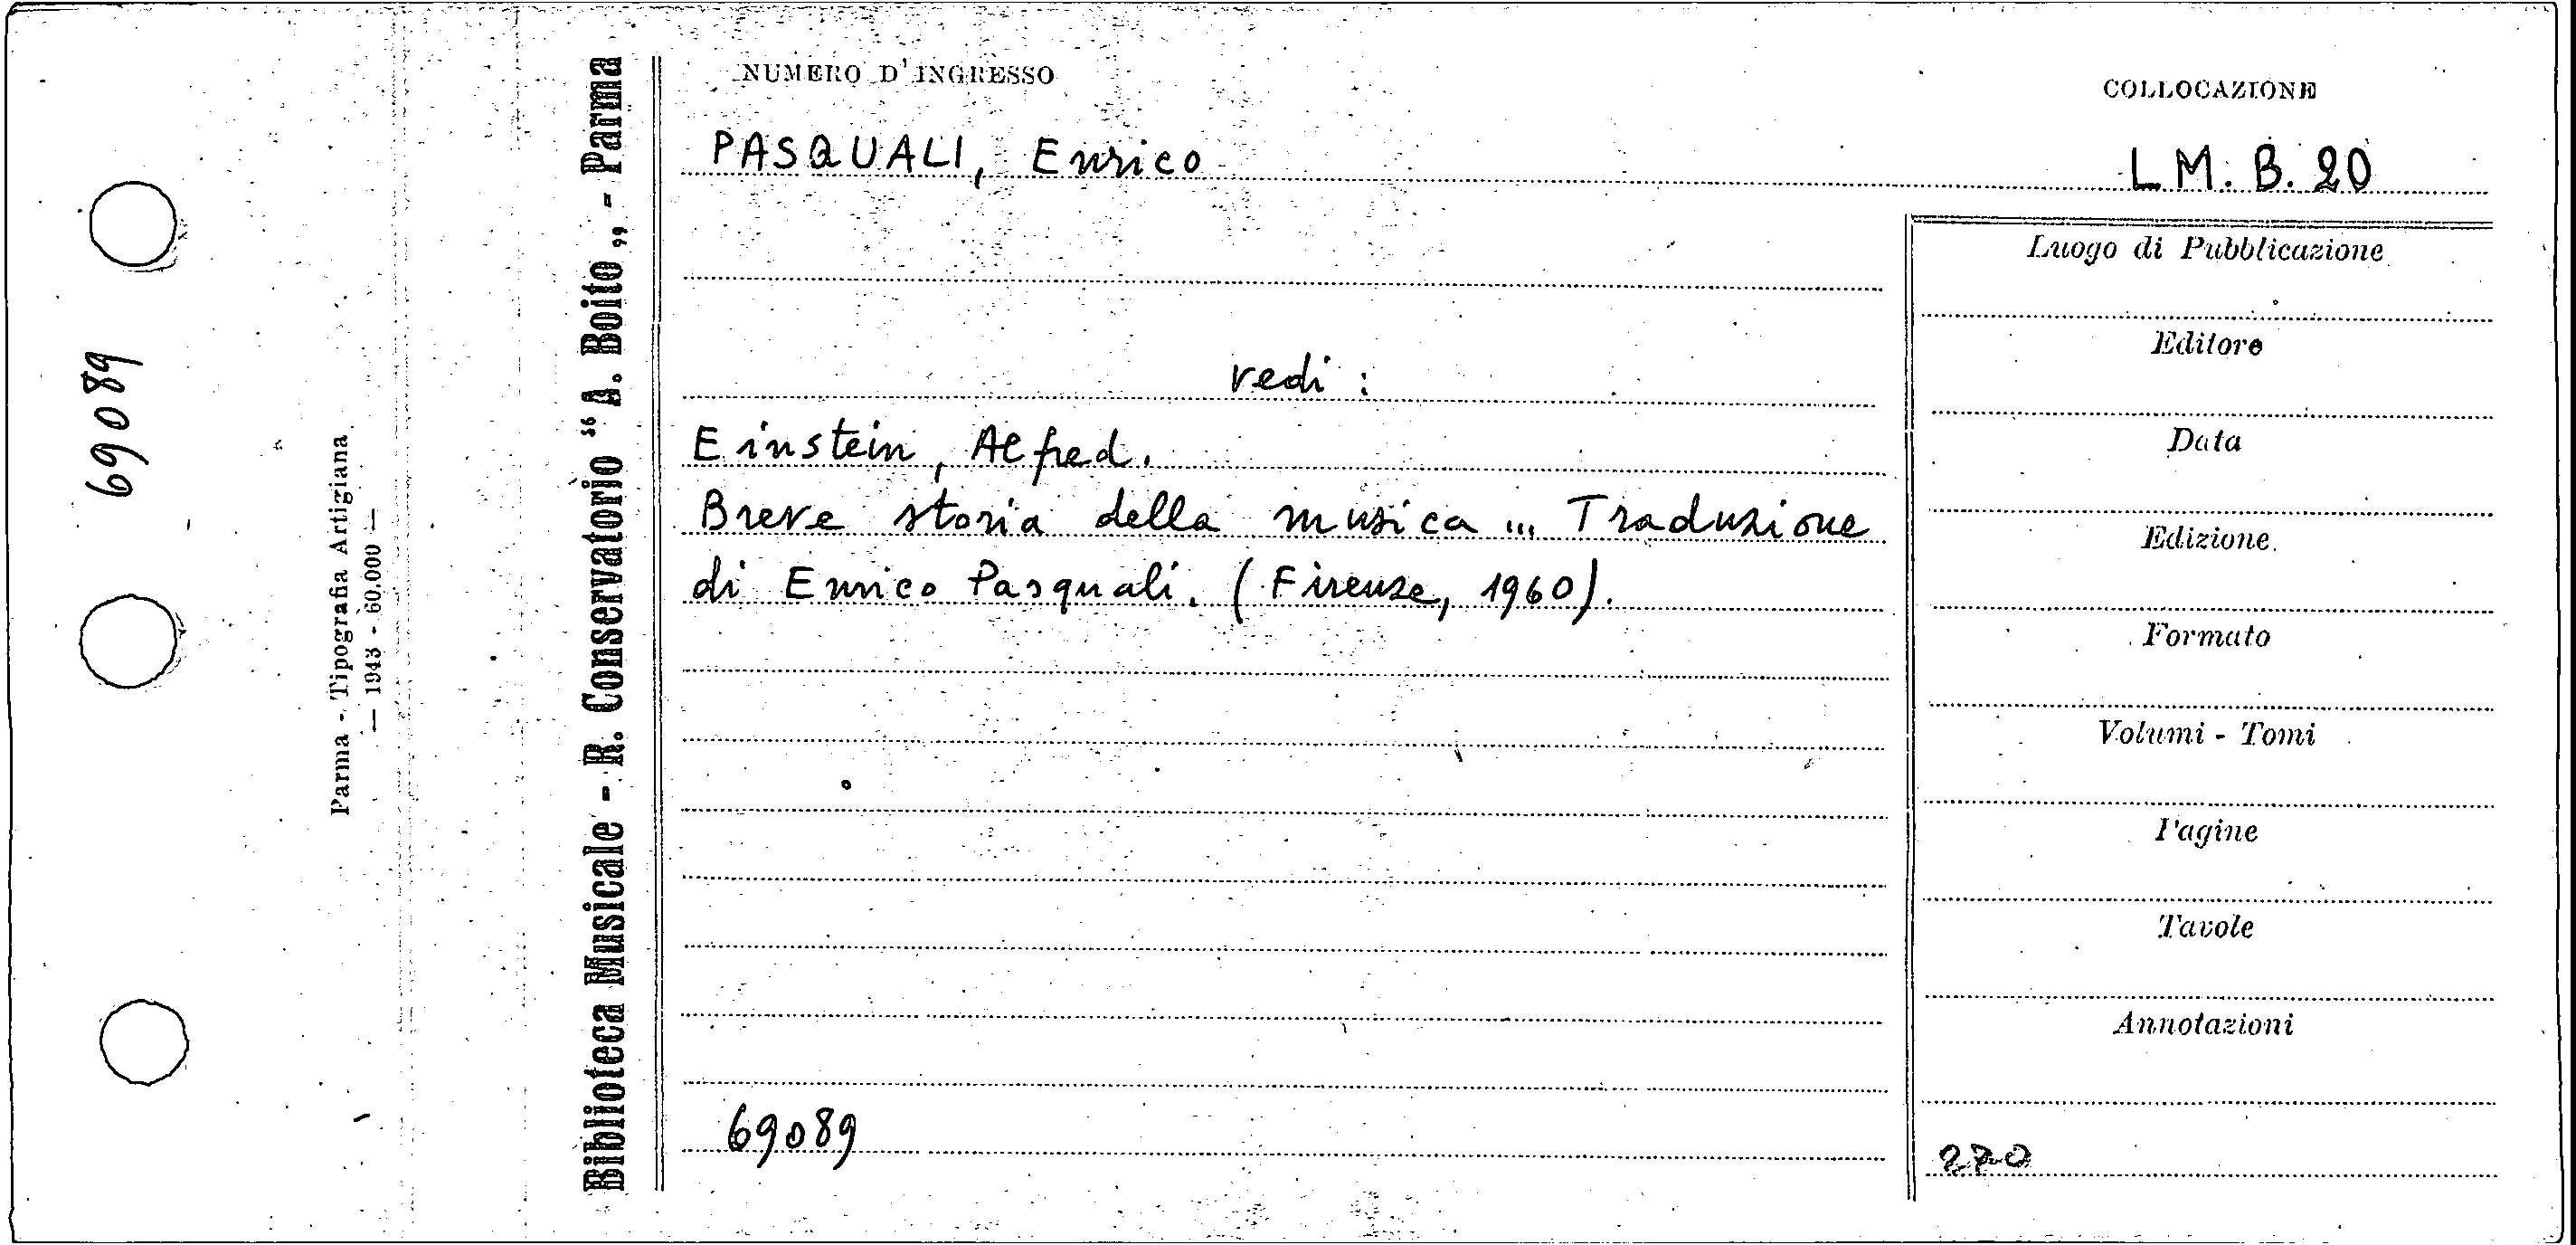 69089
Parma - Tipografia Artigiana
— 1943 - 60.000 —
Biblioteca Musicale - R. Conservatorio “A. Boito„ - Parma
NUMERO D'INGRESSO
COLLOCAZIONE
PASQUALI, Enrico
L.M. B. 20
vedi :
Einstein, Alfred.
Breve storia della musica ... Traduzione
di Enrico Pasquali. (Firenze, 1960).
69089
Luogo di Pubblicazione
Editore
Data
Edizione
Formato
Volumi - Tomi
Pagine
Tavole
Annotazioni
270